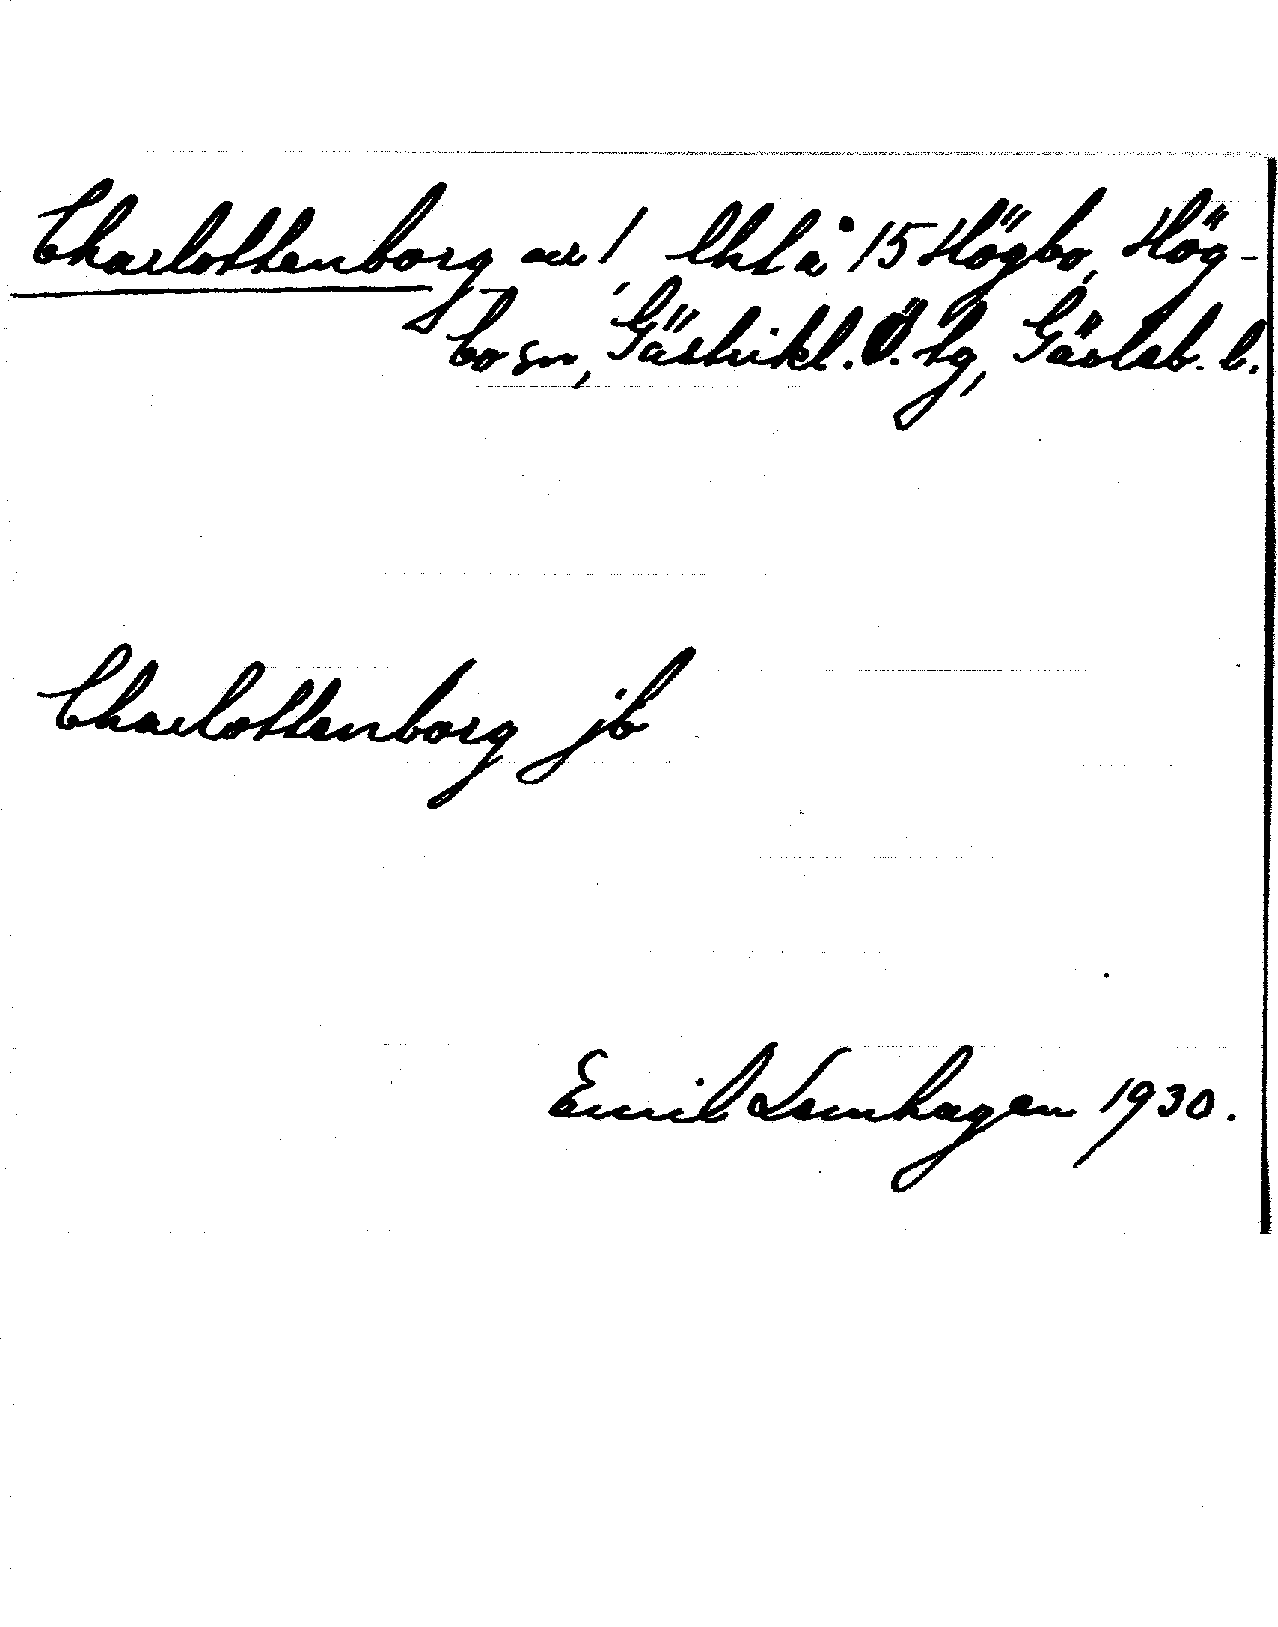 Charlottenborg nr 1, lht å 15 Högbo, Hög-
bo sn, Gästrikl. Ö. tg, Gävleb. l.
Charlottenborg jb
Emil Lemhagen 1930.